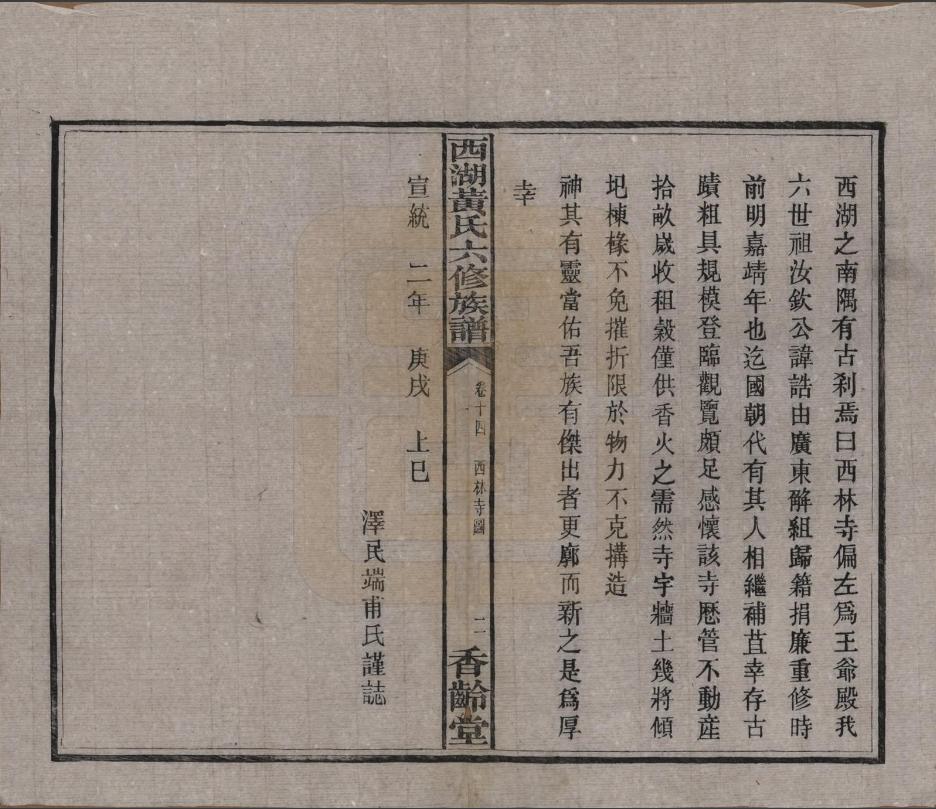 西湖之南隅有古刹焉曰西林寺偏左爲王爺殿我
六世祖汝欽公諱誥由廣東解組歸籍捐廉重修時
前明嘉靖年也迄國朝代有其人相繼補苴幸存古
蹟粗具規模登臨觀覽頗足感懷該寺歷管不動産
拾畝嵗收租穀僅供香火之需然寺宇牆土幾將傾
圯棟椽不免摧折限於物力不克搆造
神其有靈當佑吾族有傑出者更廓而新之是爲厚
幸
西湖黃氏六修族譜
卷十四 西林寺圖 二
香齡堂
宣統 二年 庚戌 上巳
澤民端甫氏謹誌